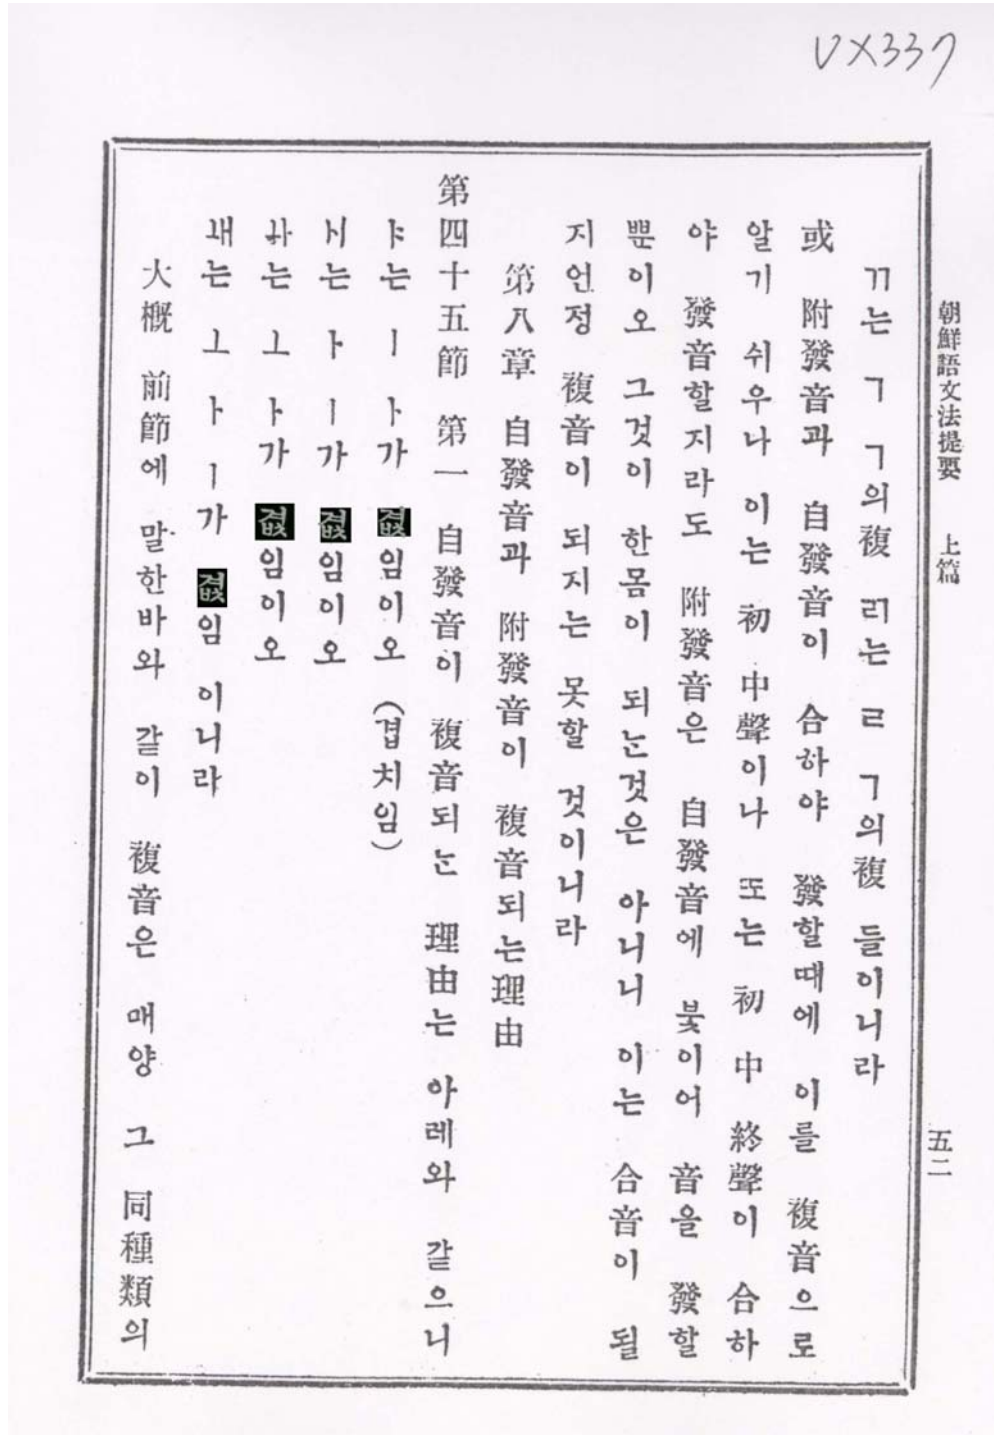 UX337
朝鮮語文法提要 上篇 五二
ㄲ는 ㄱ ㄱ의複 ㄺ는 ㄹ ㄱ의複 들이니라
或 附發音과 自發音이 合하야 發할때에 이를 複音으로
알기 쉬우나 이는 初 中聲이나 또는 初 中 終聲이 合하
야 發音할지라도 附發音은 自發音에 붗이어 音을 發할
뿐이오 그것이 한몸이 되는것은 아니니 이는 合音이 될
지언정 複音이 되지는 못할 것이니라
第八章 自發音과 附發音이 複音되는理由
第四十五節 第一 自發音이 複音되는 理由는 아레와 같으니
ㅑ는 ㅣ ㅏ가 임이오 (겹치임)
ㅐ는 ㅏ ㅣ가 임이오
ㅘ는 ㅗ ㅏ가 임이오
ㅙ는 ㅗ ㅏ ㅣ가 임 이니라
大槪 前節에 말한바와 같이 複音은 매양 그 同種類의